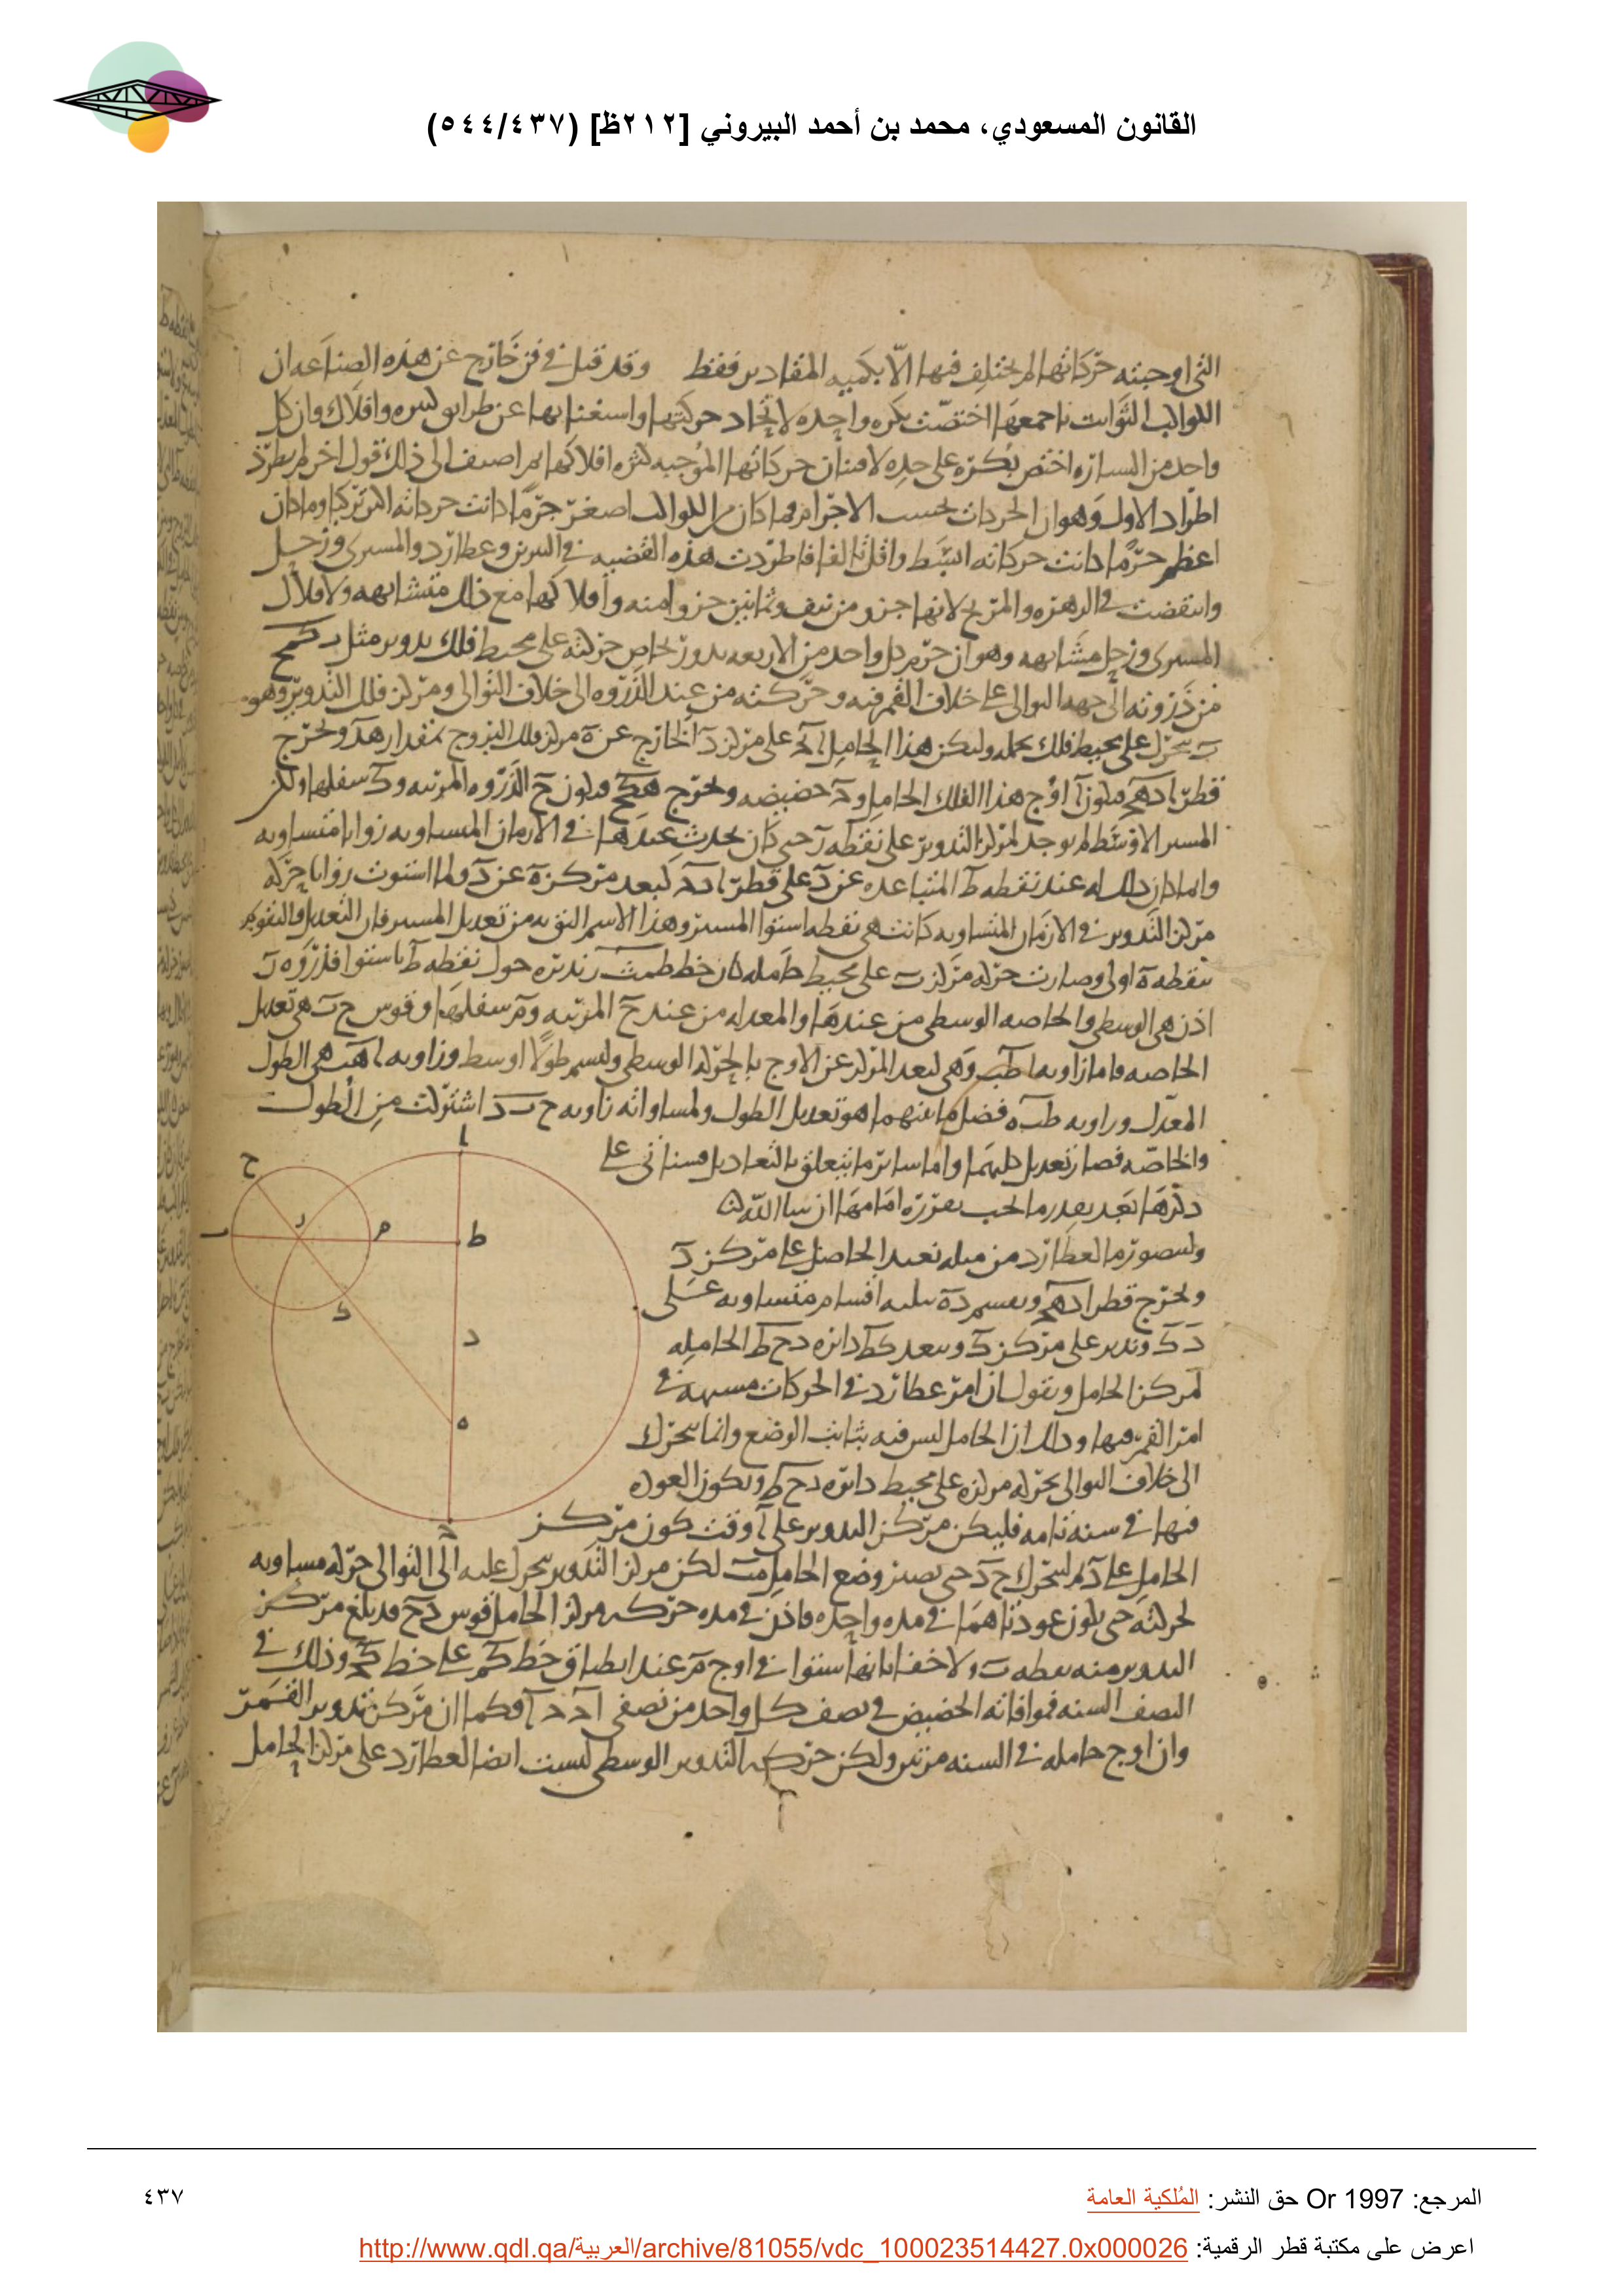 القانون المسعودي، محمد بن أحمد البيروني [٢١٢ظ] (٥٤٤/٤٣٧)
التي اوجبته حركاتها لم يختلف فيها الا بكميه المقادير فقط وقد قيل في فن خارج عن هذه الصناعه ان
الكواكب الثوابت باجمعها اختصت بكره واحده لاتحاد حركتها واستغنابها عن طرايق كثيره وافلاك وان كل
واحد من السياره اختص بكره على حده لافتنان حركاتها الموجبه كثره افلاكها ثم اضيف الى ذلك قول اخر لم يطرد
اطراد الاول وهو ان الحركات بحسب الاجرام فما كان من الكواكب اصغر جرما كانت حركاته اكثر تركبا وما كان
اعظم جرما كانت حركاته ابسط واقل تالفا فاطردت هذه القضيه في النيرين وعطارد والمشتري وزحل
وانتقضت في الزهره والمريخ لانها جزو من نيف وثمانين جزوا منه وافلاكها مع ذلك متشابهه ولافلاك
المشتري وزحل مشابهه وهو ان جرم كل واحد من الاربعه يدور بخاص حركته على محيط فلك تدوير مثل ب ك م ح
من ذروته الى جهه التوالي على خلاف القمر فيه وحركته من عند الذروه الى خلاف التوالي ومركز فلك التدوير وهو
ب يتحرك على محيط فلك يحمله وليكن هذا الحامل ا ج على مركز د الخارج عن ه مركز فلك البروج بمقدار ه د ونخرج
قطر ا د ه ج فيكون ا اوج هذا الفلك الحامل و ج حضيضه ونخرج ه ك ح فيكون ح الذروه المرتبه و ك سفلها ولكن
المسير الاوسط لم يوجد لمركز التدوير على نقطه د حتى كان يحدث عندها في الازمان المتساويه زوايا متساويه
وانما كان ذلك له عند نقطه ط المتباعده عن د على قطر ا د ج كبعد مركز ه عن د ولما استوت زوايا حركه
مركز التدوير في الازمان المتساويه كانت هي نقطه استوا المسير وهذا الاسم اليق به من تعديل المسير فان التعديل والتقويم
بنقطه ه اولى وصارت حركه مركز ب على محيط حامله كان خط ط م ب يديره حول نقطه ط باستوا فذروه ب
اذن هي الوسطى والخاصه الوسطى من عندها والمعدله من عند ح المرتبه و م سفلها وقوس ح ب هي تعديل
الخاصه فاما زاويه ا ط ب وهي لبعد المركز عن الاوج بالحركه الوسطى وليسم طولا اوسط وزاويه ا ه ب هي الطول
المعدل وزاويه ط ب ه فضل ما بينهما هو تعديل الطول ولمساواته زاويه ح ب د اشتركت من الطول
والخاصه فصار تعديل كليهما واما ساير ما يتعلق بالتعاديل فسناتي على
ذكرها بعد بقدر ما يجب تقرره امامها ان شا الله
ولتصور ما لعطارد من مثله نعيد الحاصل على مركز د
ونخرج قطر ا د ه ج ونقسم د ه بثلثه اقسام متساويه على
د ك وندير على مركز ك وببعد ك ط دايره د ح ط الحامله
لمركز الحامل ونقول ان امر عطارد في الحركات مشبه في
امر القمر فيها وذلك ان الحامل ليس فيه بثابت الوضع وانما يتحرك
الى خلاف التوالي بحركه مركزه على محيط دايره د ح ط ويكون العوده
فيها في سنه تامه فليكن مركز التدوير على ا وقت كون مركز
الحامل على د ثم ليتحرك ح د حتى يصير وضع الحامل م ب لكن مركز التدوير يتحرك عليه الى التوالي حركه مساويه
لحركته حتى يكون عودتاهما في مده واحده فاذن في مده حركه مركز الحامل قوس د ح قد بلغ مركز
التدوير منه نقطه ب ولا خفا بانها استوا في اوج م عند انطباق خط ك م على خط ك ج وذلك في
النصف السنه فموافاته الحضيض في نصف كل واحد من نصفي ا ج ج ا فكما ان مركز تدوير القمر
وان اوج حامله في السنه مرتين ولكن حركه التدوير الوسطى ليست ايضا لعطارد على مركز الحامل
ا
ح
ر
م
ط
ب
ك
د
ه
ج
المرجع: Or 1997 حق النشر: المُلكية العامة
٤٣٧
اعرض على مكتبة قطر الرقمية: http://www.qdl.qa/العربية/archive/81055/vdc_100023514427.0x000026